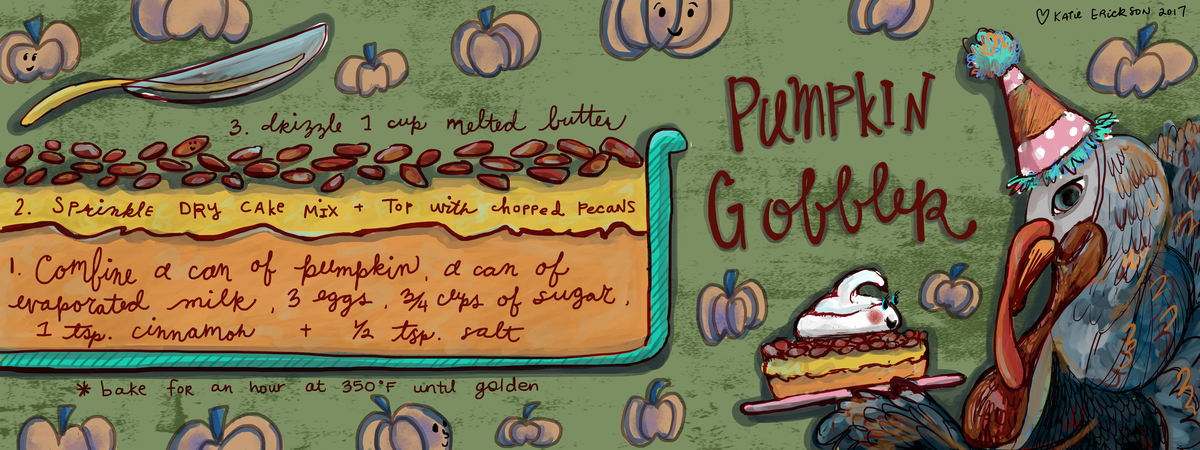 ♡ Katie Erickson 2017
Pumpkin
Gobbler
3. drizzle 1 cup melted butter
2. Sprinkle DRY CAKE MIX + Top with chopped pecans
1. Combine a can of pumpkin, a can of
evaporated milk, 3 eggs, 3/4 cups of sugar,
1 tsp. cinnamon + 1/2 tsp. salt
* bake for an hour at 350°F until golden